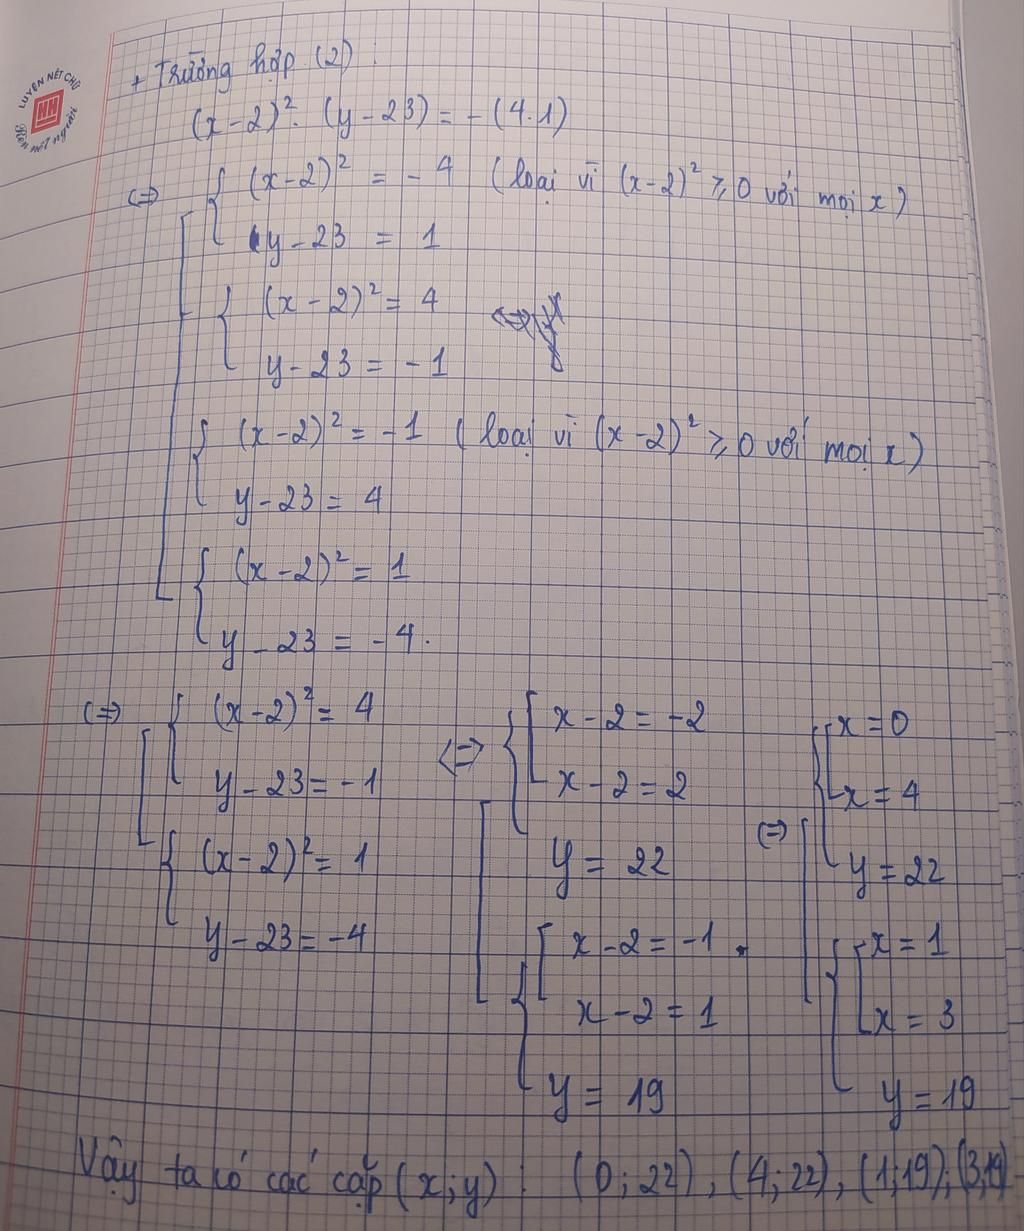 LUYỆN NÉT CHỮ
NH
Rèn nết người
+ Trường hợp (2) :
(x-2)². (y-23) = -(4.1)
<=> (x-2)² = -4 (loại vì (x-2)² ⩾ 0 với mọi x)
y-23 = 1
(x-2)² = 4
y-23 = -1
(x-2)² = -1 (loại vì (x-2)² ⩾ 0 với mọi x)
y-23 = 4
(x-2)² = 1
y-23 = -4.
<=> (x-2)² = 4 <=> x-2 = -2 x = 0
y-23 = -1 x-2 = 2 <=> x = 4
(x-2)² = 1 y = 22 y = 22
y-23 = -4 x-2 = -1 x = 1
x-2 = 1 x = 3
y = 19 y = 19
Vậy ta có các cặp (x;y) : (0;22), (4;22), (1;19), (3;19)